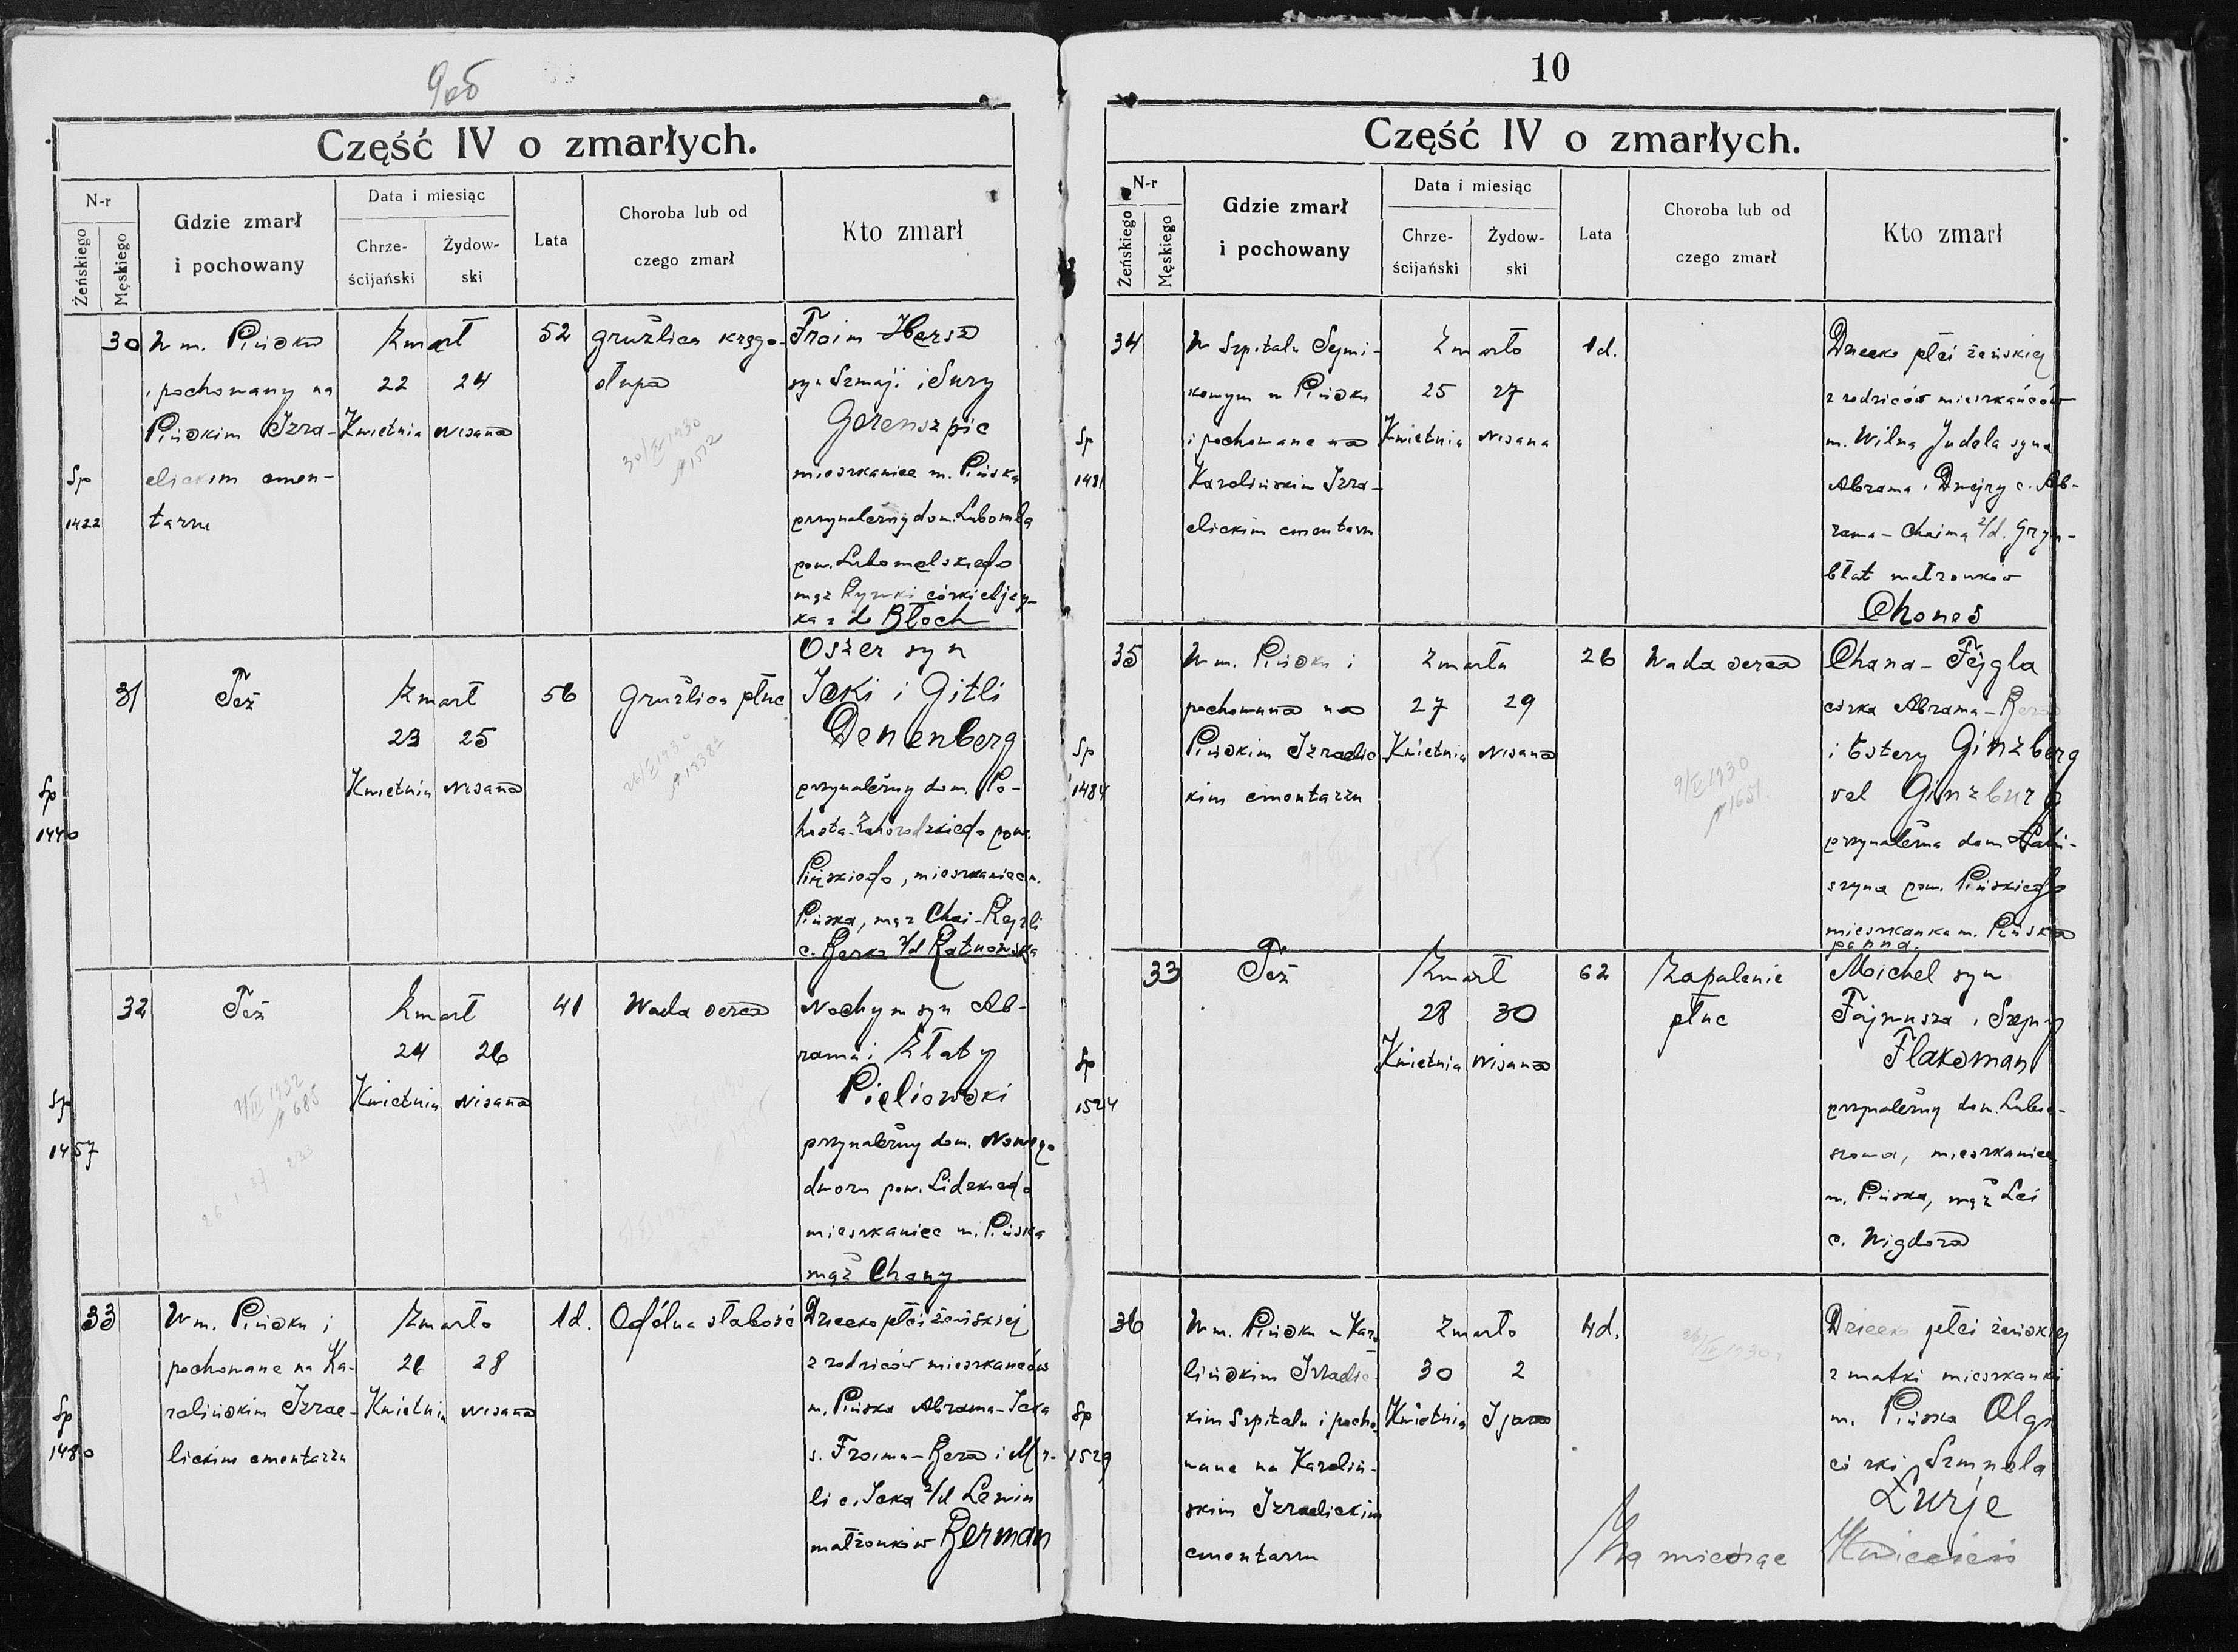 9об
Część IV o zmarłych.
N-r
Żeńskiego
Męskiego
Gdzie zmarł
i pochowany
Data i miesiąc
Chrze-
ścijański
Żydow-
ski
Lata
Choroba lub od
czego zmarł
Kto zmarł
30
W m. Pińsku
i pochowany na
Pińskim Izra-
elickim cmen-
tarzu
Sp
1422
Zmarł
22 24
Kwietnia Nisana
52
gruźlica kręgo-
słupa
30/IV 1930
№ 1572
Froim Hersz
syn Szmaji i Sury
Gerenszpic
mieszkaniec m. Pińska
przynależny do m. Lubomla
pow. Lubomelskiego
mąż Rywki córki
ka z d. Błoch
31
Też
Sp
1440
Zmarł
23 25
Kwietnia Nisana
56
Gruźlica płuc
Oszer syn
Icki i Gitli
Denenberg
przynależny do m. Po-
hosta-Zahorodzkiego pow.
Pińskiego, mieszkaniec m.
Pińska, mąż Chai-Rejzli
c. Berka z/d Ratnowska
32
Też
Sp
1457
Zmarł
24 26
Kwietnia Nisana
41
Wada serca
Nochym syn Ab-
rama i Złaty
Pieliowski
przynależny do m. Nowego
dworu pow. Lidzkiego
mieszkaniec m. Pińska
mąż Chany
33
W m. Pińsku i
pochowane na Ka-
rolińskim Izrae-
lickim cmentarzu
Sp
1480
Zmarło
26 28
Kwietnia Nisana
1d.
Ogólna słabość
Dziecko płci żeńskiej
z rodziców mieszkańców
m. Pińska Abrama-Icka
s. Froima-Bera i Mir-
li c. Icka z/d Lewin
małżonków Berman
10
Część IV o zmarłych.
N-r
Żeńskiego
Męskiego
Gdzie zmarł
i pochowany
Data i miesiąc
Chrze-
ścijański
Żydow-
ski
Lata
Choroba lub od
czego zmarł
Kto zmarł
34
W Szpitalu Sejmi-
kowym w Pińsku
i pochowane na
Karolińskim Izra-
elickim cmentarzu
Sp
1481
Zmarło
25 27
Kwietnia Nisana
1d.
Dziecko płci żeńskiej
z rodziców mieszkańców
m. Wilna Judela syna
Abrama i Dwejry c. Ab-
rama-Chaima z/d. Gryn-
błat małżonków
Chones
35
W m. Pińsku i
pochowana na
Pińskim Izraelic
kim cmentarzu
Sp
1484
Zmarła
27 29
Kwietnia Nisana
26
Wada serca
9/V 1930
№ 1651
Chana-Fejgla
córka Abrama-Bera
i Estery Ginzberg
vel Ginzburg
przynależna do m. Łohi-
szyna pow. Pińskiego
mieszkanka m. Pińska
panna
33
Też
Sp
1524
Zmarł
28 30
Kwietnia Nisana
62
Zapalenie
płuc
Moichel syn
Fajwusza i
Flaksman
przynależny do m. Lubie-
szowa, mieszkaniec
m. Pińska, mąż Lei
c. Wigdora
36
W m. Pińsku w Karo
lińskim Izraelic-
kim Szpitalu i pocho
wane na Karoliń-
skim Izraelickim
cmentarzu
Sp
1529
Zmarło
30 2
Kwietnia Ijara
4d.
Dziecko płci żeńskiej
z matki mieszkanki
m. Pińska Olgi
córki Szmuela
Lurje
Za miesiąc Kwiecień